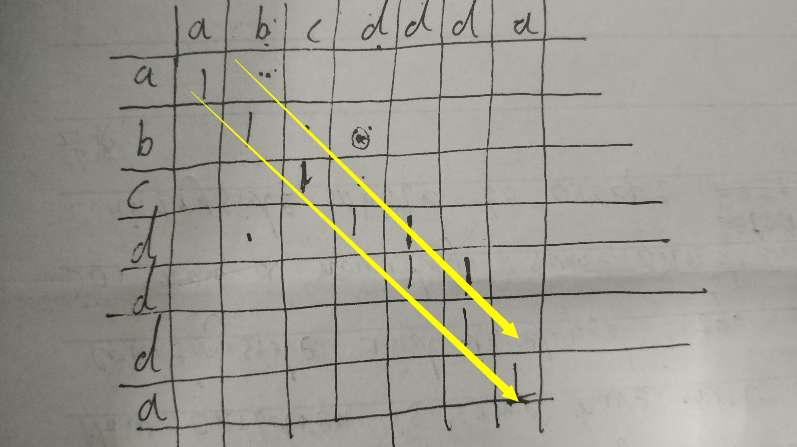 a b c d d d a
a 1
b 1
c 1
d 1 1
d 1 1
d 1
a 1